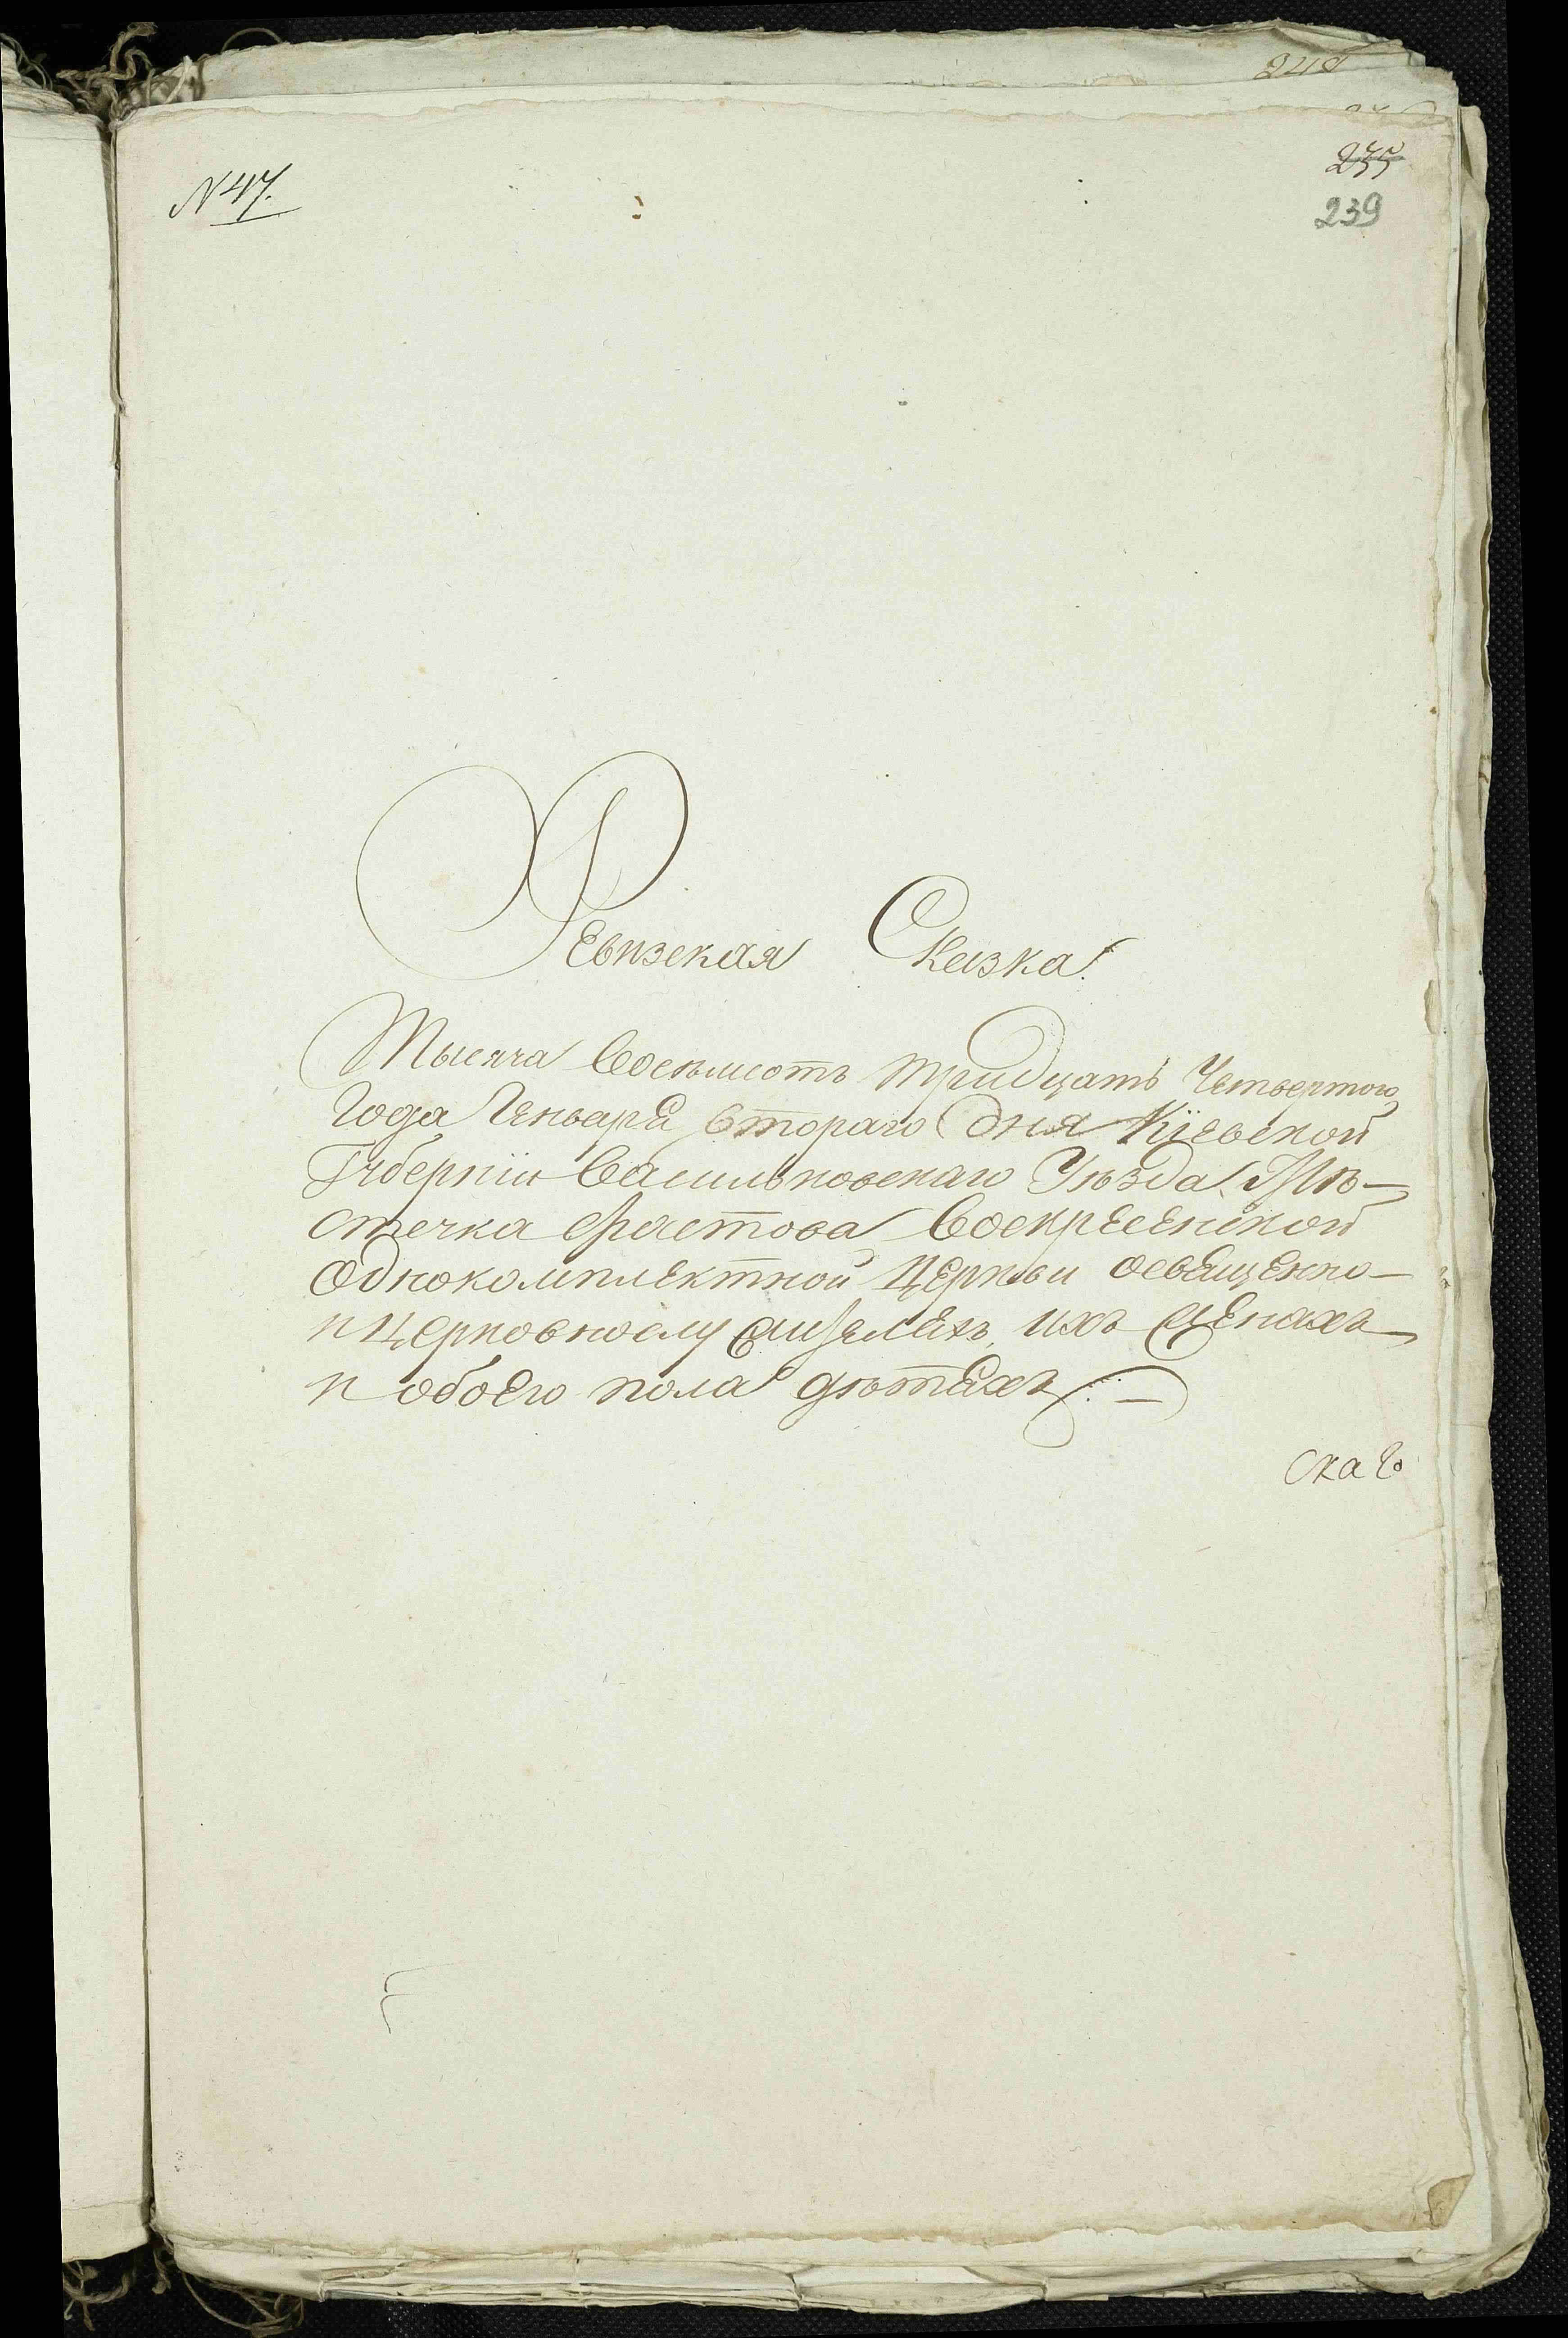 248
N 47.
235
239
Ревизская Сказка.
Тысяча Восемьсотъ тридцать Четвертого
Года Генваря втораго дня Кіевской
Губерніи Васильковскаго Уѣзда Мѣ-
стечка Фастова Воскресенской
Однокомплектной Церкви освященно-
и церковнослужителяхъ, ихъ женахъ
и обоего пола дѣтяхъ. —